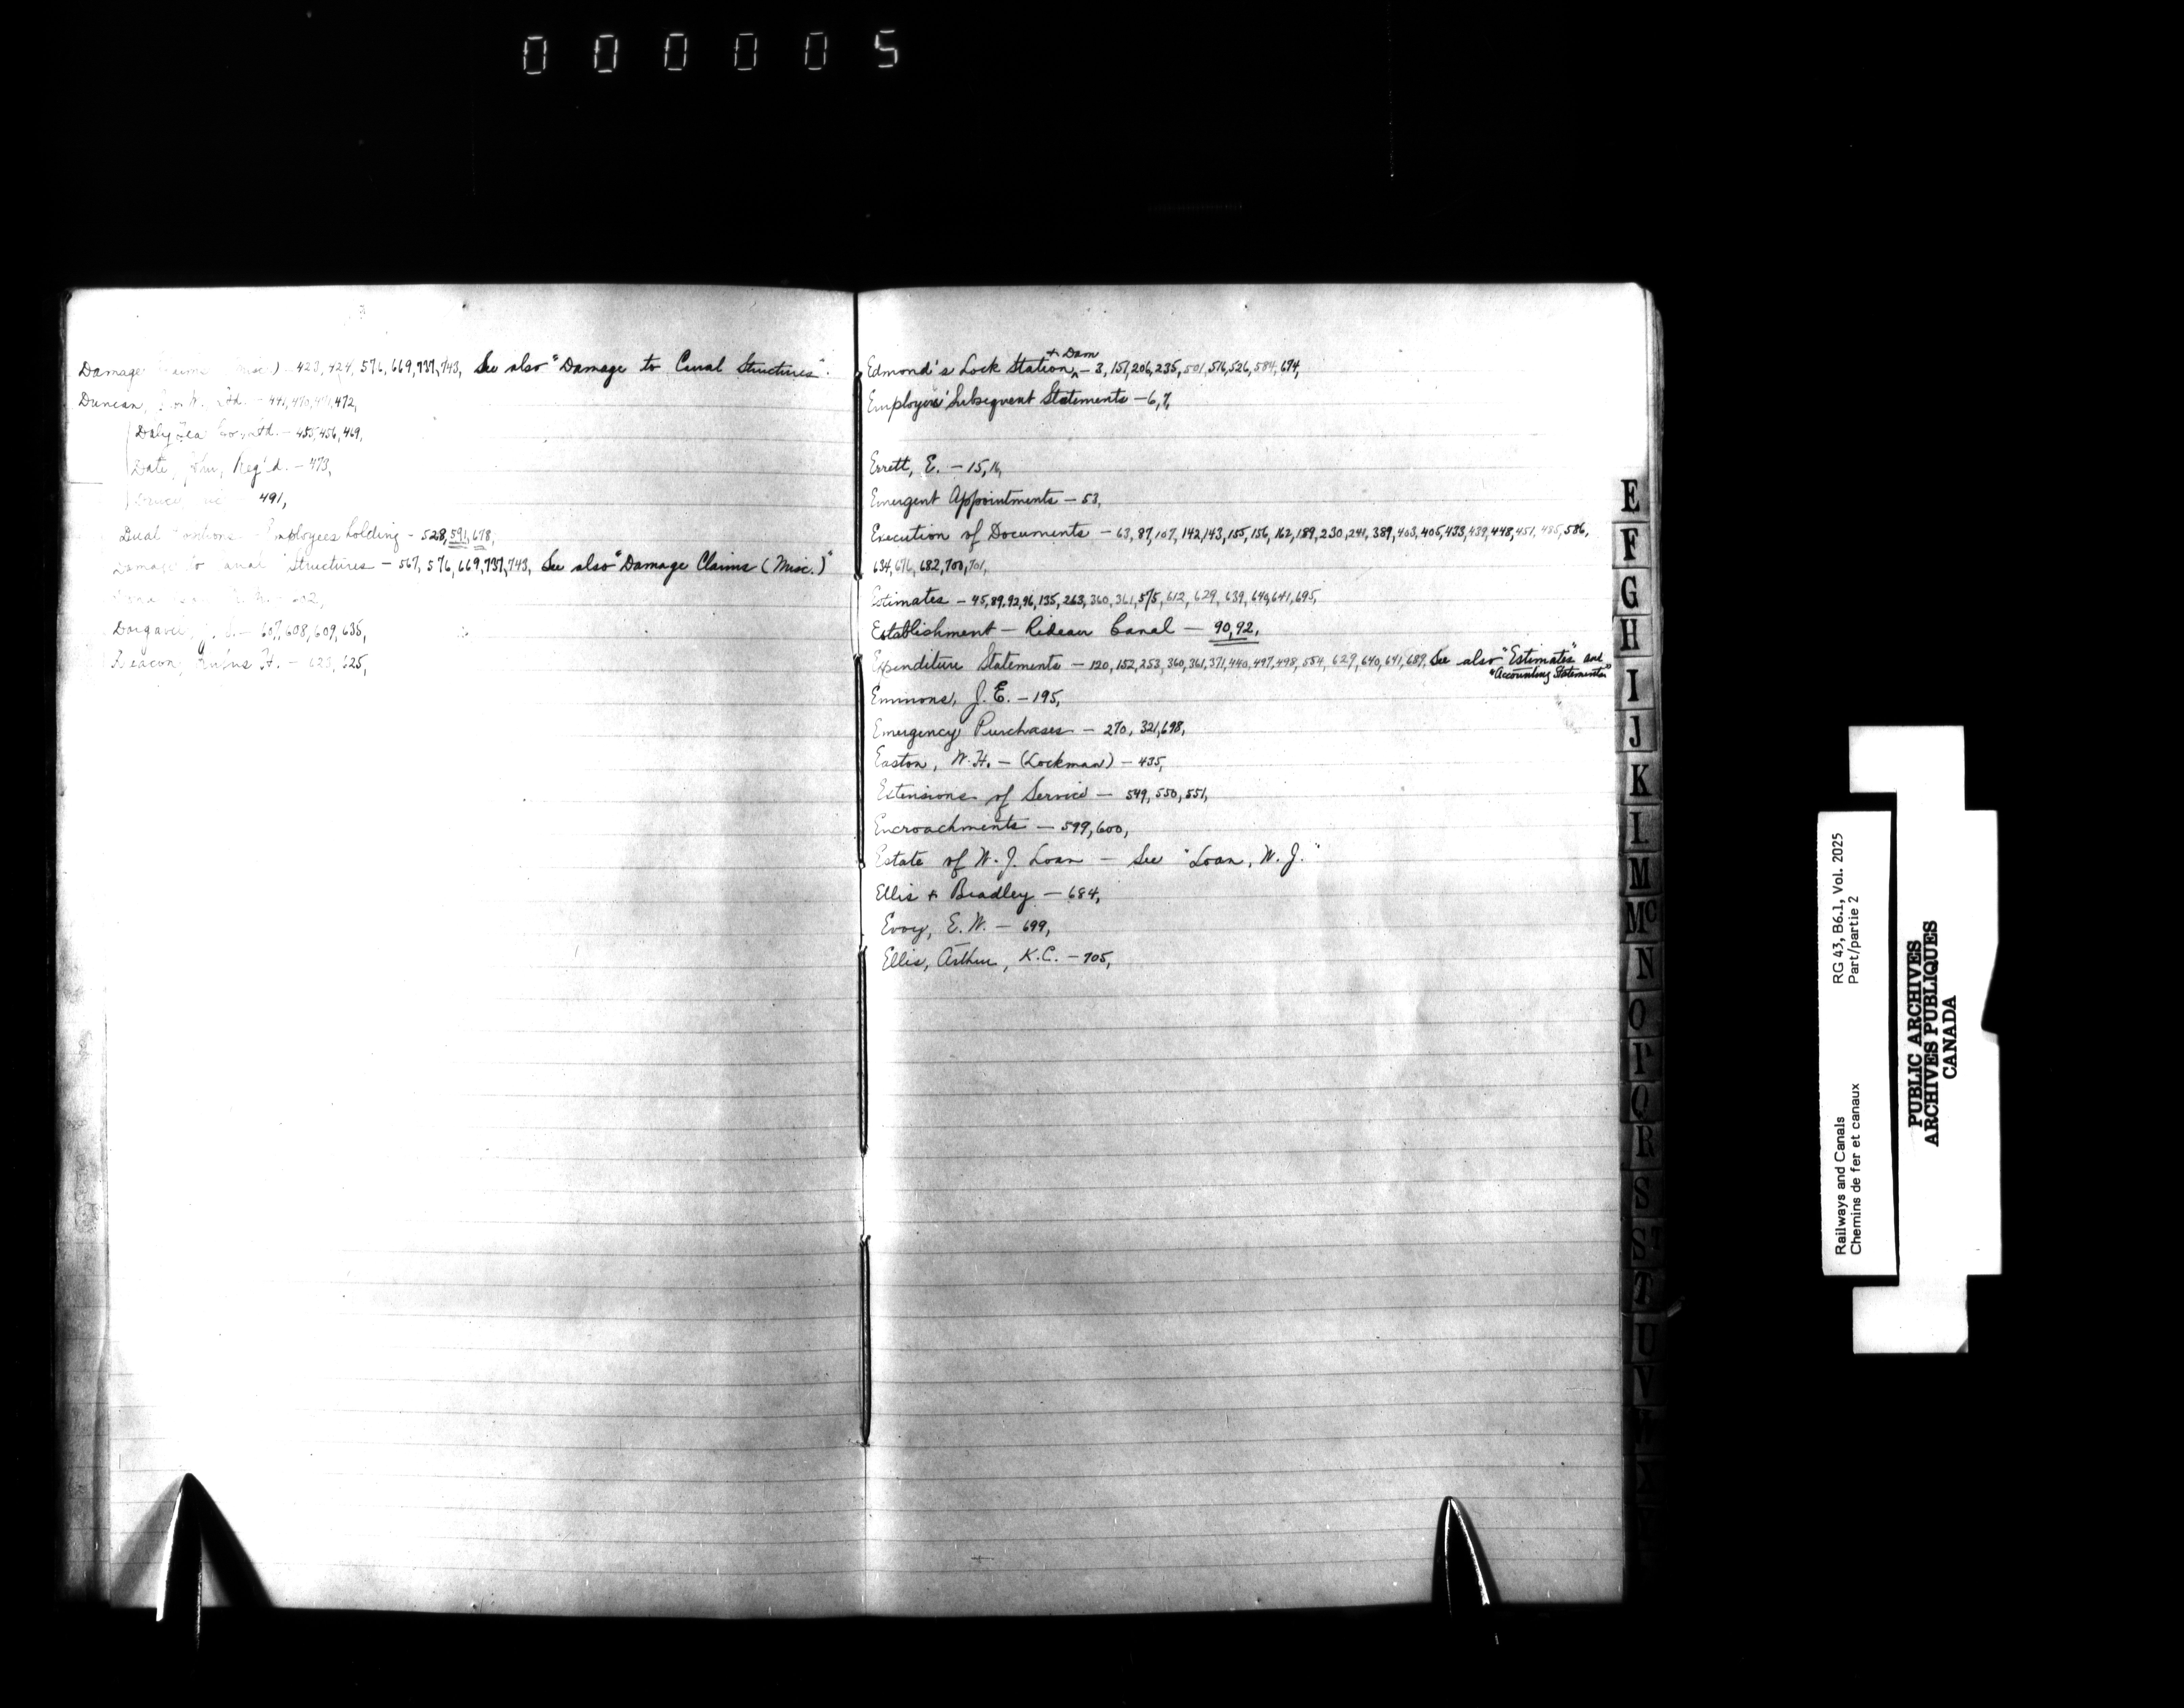 000005
Damage (Misc.) - 423, 424, 576, 669, 737, 743, See also "Damage to Canal Structures".
Duncan, Ltd. - 472,
Daly Tea Co., Ltd. - 455, 456, 469,
Date, John, Reg'd. - 473,
491,
Dual Positions - Employees holding - 528, 591, 678,
Damage to Canal Structures - 567, 576, 669, 737, 743, See also "Damage Claims (Misc.)"
Dargavel, J. S. - 607, 608, 609, 635,
Deacon, Rufus H. - 623, 625,
Edmond's Lock Station + Dam - 3, 151, 206, 235, 501, 516, 526, 584, 674,
Employees' Subsequent Statements - 6, 7,
Errett, E. - 15, 16,
Emergent Appointments - 53,
Execution of Documents - 63, 87, 107, 142, 143, 155, 156, 162, 189, 230, 241, 389, 403, 405, 433, 439, 448, 451, 485, 586,
634, 676, 682, 700, 701,
Estimates - 45, 89, 92, 96, 135, 263, 360, 361, 575, 612, 629, 639, 640, 641, 695,
Establishment - Rideau Canal - 90, 92,
Expenditure Statements - 120, 152, 253, 360, 361, 371, 440, 497, 498, 554, 629, 640, 641, 689, See also "Estimates" and
"Accounting Statements"
Emmons, J. E. - 195,
Emergency Purchases - 270, 321, 698,
Easton, W. H. - (Lockman) - 435,
Extensions of Service - 549, 550, 551,
Encroachments - 599, 600,
Estate of W. J. Loan - See "Loan, W. J."
Ellis + Bradley - 684,
Evoy, E. W. - 699,
Ellis, Arthur, K.C. - 705,
E
F
G
H
I
J
K
L
M
Mc
N
O
P
Q
R
S
T
U
V
Railways and Canals RG 43, B6.1, Vol. 2025
Chemins de fer et canaux Part/partie 2
PUBLIC ARCHIVES
ARCHIVES PUBLIQUES
CANADA